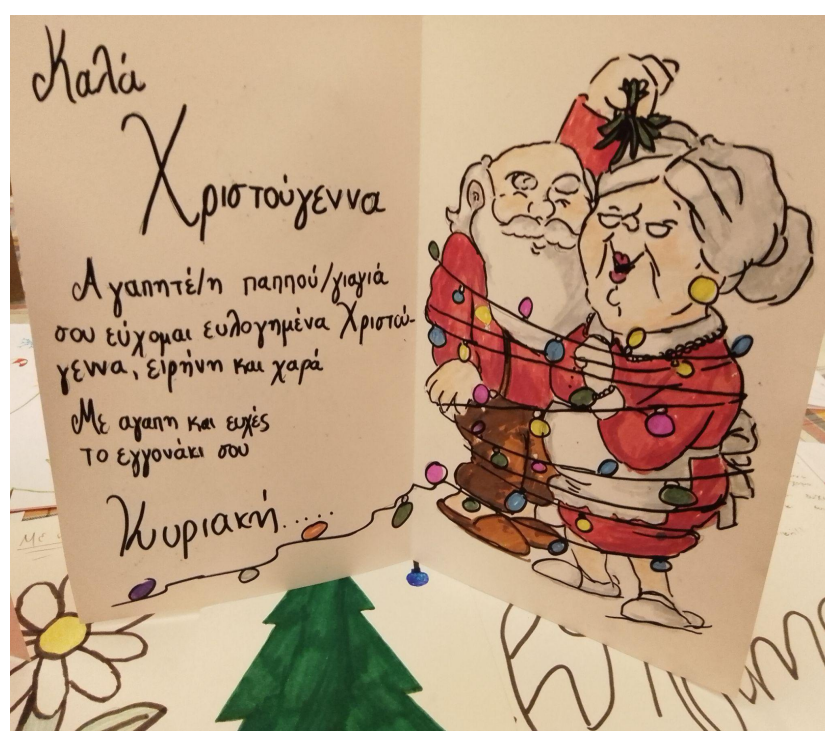 Καλά
Χριστούγεννα
Αγαπητέ/η παππού/γιαγιά
σου εύχομαι ευλογημένα Χριστού-
γεννα, ειρήνη και χαρά
Με αγαπη και ευχές
το εγγονάκι σου
Κυριακή......